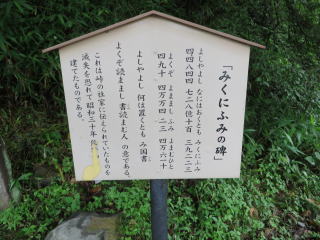 「みくにふみの碑」
よしやよし なにはおくとも みくにふみ
四四八四四 七二八億十百 三九二二三
よくぞ よままし ふみ よまむひと
四九十 四万万四 二三 四万六一十
よしやよし 何は置くとも み国書
よくぞ読ままし 書読まむ人 の意である。
これは峠の社家に伝えられていたものを
滅失を恐れて昭和三十年
建てたものである。